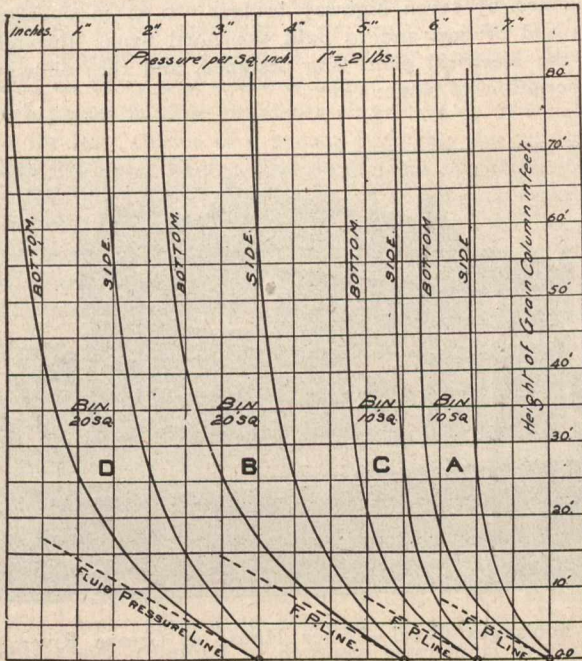 inches. 1" 2" 3" 4" 5" 6" 7"
Pressure per Sq. inch. 1" = 2 lbs.
80'
70'
60'
50'
40'
30'
20'
10'
0.0
Height of Grain Column in feet.
BOTTOM. SIDE. BOTTOM. SIDE. BOTTOM. SIDE. BOTTOM. SIDE.
BIN 20'SQ. BIN 20'SQ. BIN 10'SQ. BIN 10'SQ.
D B C A
FLUID PRESSURE LINE. F.P. LINE. F.P. LINE. F.P. LINE.